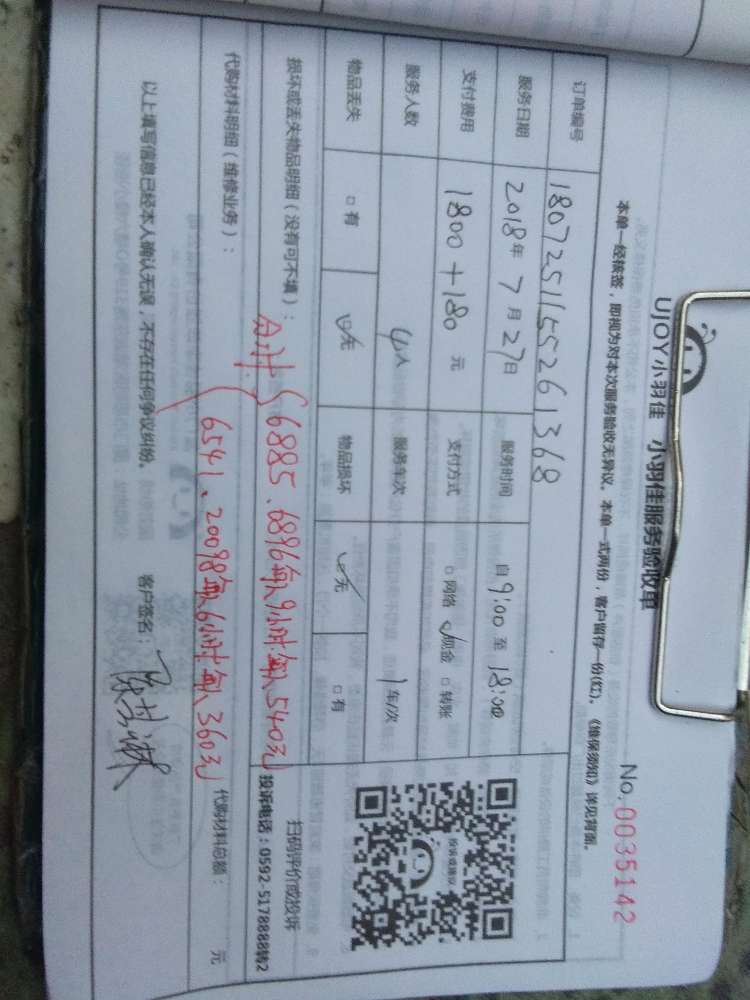 UJOY小羽佳 小羽佳服务验收单
No.0035142
本单一经核签，即视为对本次服务验收无异议。本单一式两份，客户留存一份(红)。《维保须知》详见背面。
订单编号 1807251155261368
服务日期 2018年7月27日 服务时间 自9:00至18:00
支付费用 1800+180 元 支付方式 □网络 ☑现金 □转账
服务人数 4人 服务车次 1车/次
物品丢失 □有 ☑无 物品损坏 ☑无 □有
投诉或建议
扫码评价或投诉
投诉电话：0592-5178888转2
损坏或丢失物品明细（没有可不填）：
合计 6885、6896每人9小时.每人540元
6541、20098每人6小时.每人360元
代购材料明细（维修业务）： 代购材料总额： 元
以上填写信息已经本人确认无误，不存在任何争议纠纷。 客户签名：